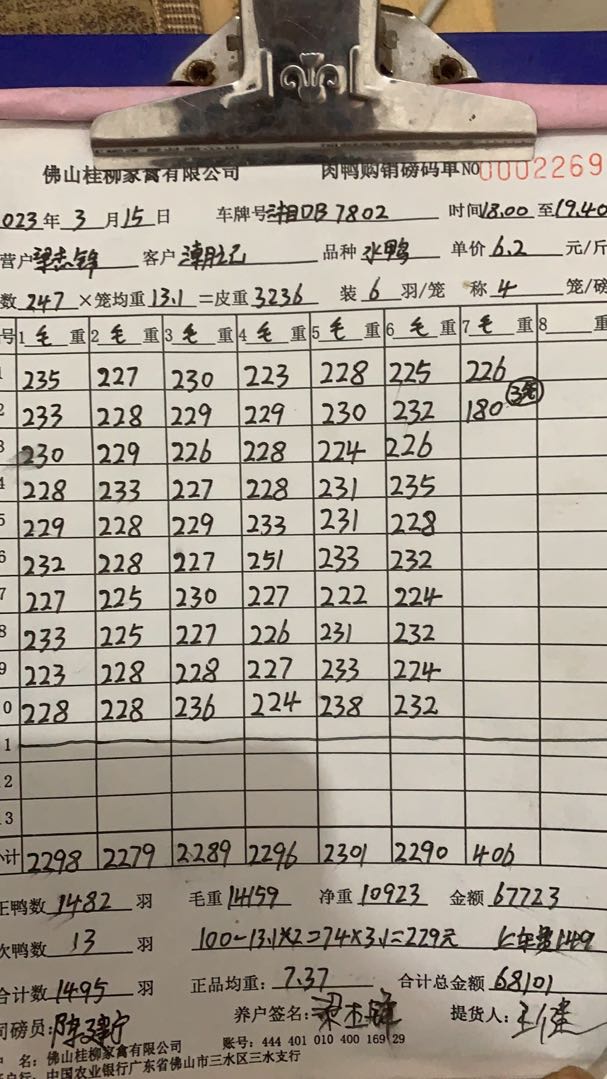 佛山桂柳家禽有限公司 肉鸭购销磅码单 NO 0002269
023年 3 月 15 日 车牌号 湘DB7802 时间 18.00 至 19.40
营户 梁志锋 客户 潮记 品种 水鸭 单价 6.2 元/斤
数 247 ×笼均重 13.1 =皮重 3236 装 6 羽/笼 称 4 笼/磅
号 1 毛 重 2 毛 重 3 毛 重 4 毛 重 5 毛 重 6 毛 重 7 毛 重 8 重
1 235 227 230 223 228 225 226
2 233 228 229 229 230 232 180 3笼
3 230 229 226 228 224 226
4 228 233 227 228 231 235
5 229 228 229 233 231 228
6 232 228 227 251 233 232
7 227 225 230 227 222 224
8 233 225 227 226 231 232
9 223 228 228 227 233 224
0 228 228 236 224 238 232
1
12
13
小计 2298 2279 2289 2296 2301 2290 406
正鸭数 1482 羽 毛重 14159 净重 10923 金额 67723
次鸭数 13 羽 100-13.1×2=74×3.1=229元 上车费149
合计数 1495 羽 正品均重: 7.37 合计总金额 68101
司磅员: 陈建宁 养户签名: 提货人:
户 名: 佛山桂柳家禽有限公司 账号: 444 401 010 400 169 29
户行: 中国农业银行广东省佛山市三水区三水支行